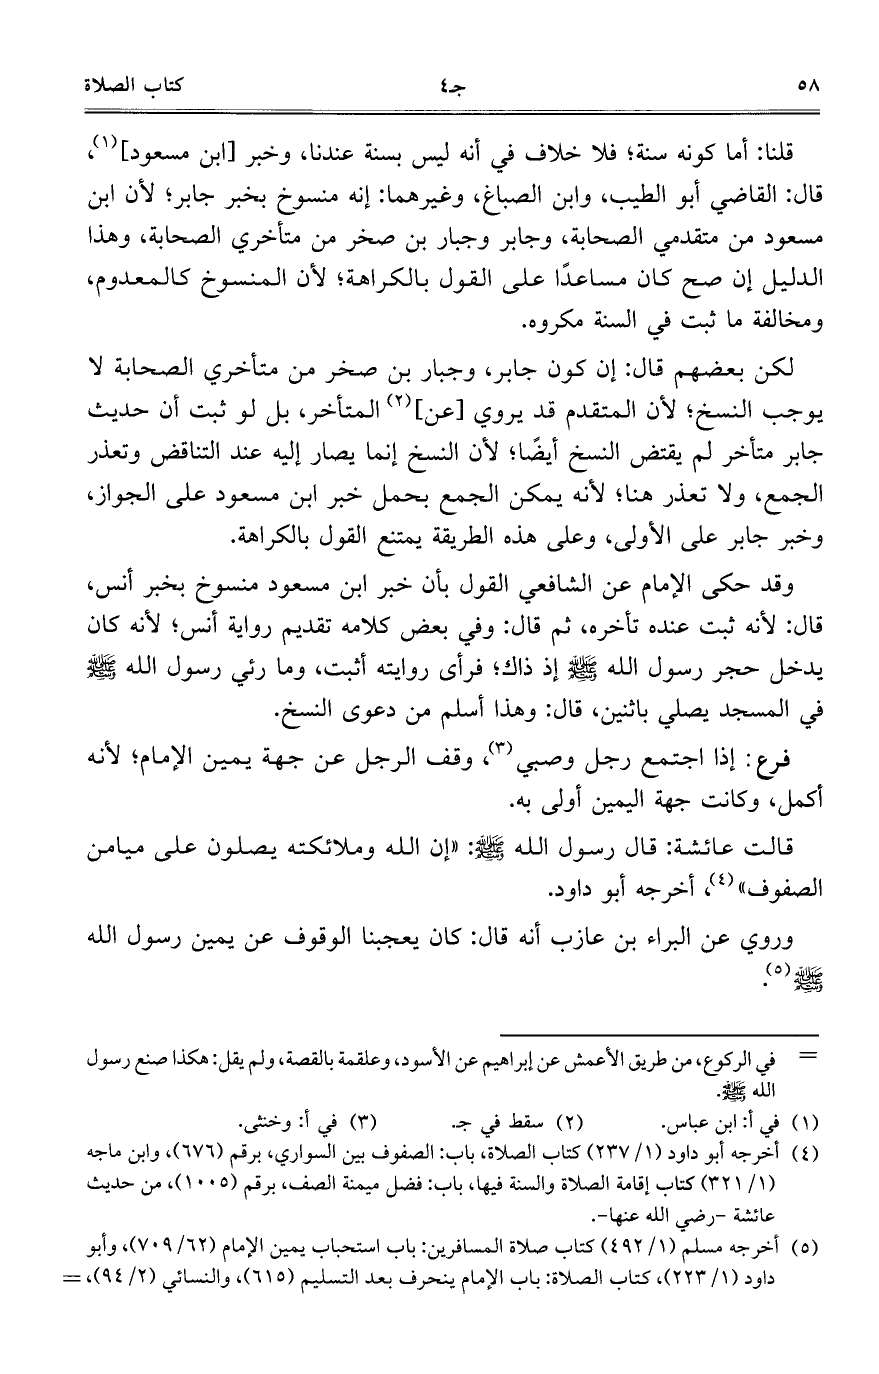 ٥٨ جـ٤ كتاب الصلاة
قلنا: أما كونه سنة؛ فلا خلاف في أنه ليس بسنة عندنا، وخبر [ابن مسعود](١)،
قال: القاضي أبو الطيب، وابن الصباغ، وغيرهما: إنه منسوخ بخبر جابر؛ لأن ابن
مسعود من متقدمي الصحابة، وجابر وجبار بن صخر من متأخري الصحابة، وهذا
الدليل إن صح كان مساعدًا على القول بالكراهة؛ لأن المنسوخ كالمعدوم،
ومخالفة ما ثبت في السنة مكروه.
لكن بعضهم قال: إن كون جابر، وجبار بن صخر من متأخري الصحابة لا
يوجب النسخ؛ لأن المتقدم قد يروي [عن](٢) المتأخر، بل لو ثبت أن حديث
جابر متأخر لم يقتض النسخ أيضًا؛ لأن النسخ إنما يصار إليه عند التناقض وتعذر
الجمع، ولا تعذر هنا؛ لأنه يمكن الجمع بحمل خبر ابن مسعود على الجواز،
وخبر جابر على الأولى، وعلى هذه الطريقة يمتنع القول بالكراهة.
وقد حكى الإمام عن الشافعي القول بأن خبر ابن مسعود منسوخ بخبر أنس،
قال: لأنه ثبت عنده تأخره، ثم قال: وفي بعض كلامه تقديم رواية أنس؛ لأنه كان
يدخل حجر رسول الله ﷺ إذ ذاك؛ فرأى روايته أثبت، وما رئي رسول الله ﷺ
في المسجد يصلي باثنين، قال: وهذا أسلم من دعوى النسخ.
فرع: إذا اجتمع رجل وصبي(٣)، وقف الرجل عن جهة يمين الإمام؛ لأنه
أكمل، وكانت جهة اليمين أولى به.
قالت عائشة: قال رسول الله ﷺ: «إن الله وملائكته يصلون على ميامن
الصفوف»(٤)، أخرجه أبو داود.
وروي عن البراء بن عازب أنه قال: كان يعجبنا الوقوف عن يمين رسول الله
ﷺ(٥).
= في الركوع، من طريق الأعمش عن إبراهيم عن الأسود، وعلقمة بالقصة، ولم يقل: هكذا صنع رسول
الله ﷺ.
(١) في أ: ابن عباس. (٢) سقط في جـ. (٣) في أ: وخنثى.
(٤) أخرجه أبو داود (١/ ٢٣٧) كتاب الصلاة، باب: الصفوف بين السواري، برقم (٦٧٦)، وابن ماجه
(١/ ٣٢١) كتاب إقامة الصلاة والسنة فيها، باب: فضل ميمنة الصف، برقم (١٠٠٥)، من حديث
عائشة -رضي الله عنها-.
(٥) أخرجه مسلم (١/ ٤٩٢) كتاب صلاة المسافرين: باب استحباب يمين الإمام (٦٢/ ٧٠٩)، وأبو
داود (١/ ٢٢٣)، كتاب الصلاة: باب الإمام ينحرف بعد التسليم (٦١٥)، والنسائي (٢/ ٩٤)، =